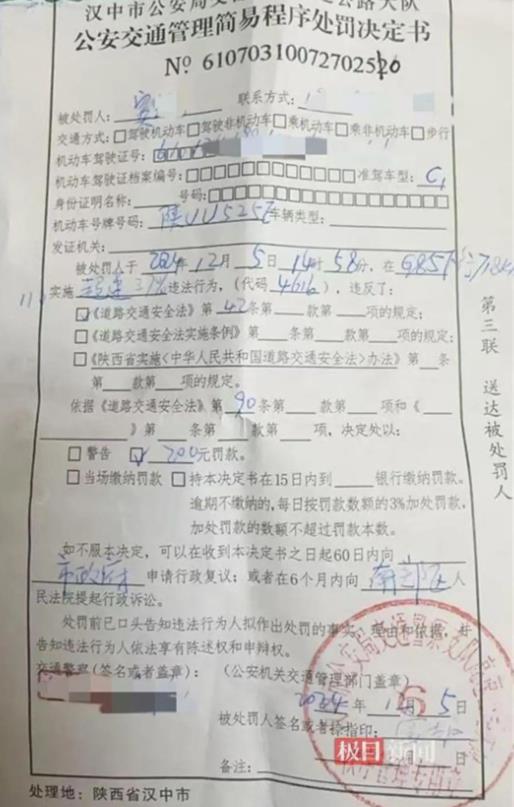 汉中市公安局交
公路大队
公安交通管理简易程序处罚决定书
№ 6107031007270252
被处罚人: 联系方式:
交通方式: □驾驶机动车□驾驶非机动车□乘机动车□乘非机动车□步行
机动车驾驶证号:
机动车驾驶证档案编号: 准驾车型: C1
身份证明名称: 号码:
机动车号牌号码: 陕U 车辆类型:
发证机关:
被处罚人于 2024年 12月 5日 14时 58分, 在 G85
实施 超速31% 违法行为, (代码 4616), 违反了:
☑《道路交通安全法》第 42 条第 款第 项的规定;
□《道路交通安全法实施条例》第 条第 款第 项的规定;
□《陕西省实施〈中华人民共和国道路交通安全法〉办法》第 条
第 款第 项的规定。
依据《道路交通安全法》第 90 条第 款第 项和《
》第 条第 款第 项, 决定处以:
□ 警告 ☑ 200 元罚款。
□ 当场缴纳罚款 □ 持本决定书在15日内到 银行缴纳罚款。
逾期不缴纳的, 每日按罚款数额的3%加处罚款,
加处罚款的数额不超过罚款本数。
如不服本决定, 可以在收到本决定书之日起60日内向
市政府 申请行政复议; 或者在6个月内向 南郑区 人
民法院提起行政诉讼。
处罚前已口头告知违法行为人拟作出处罚的事实、理由和依据, 并
告知违法行为人依法享有陈述权和申辩权。
交通警察(签名或者盖章): (公安机关交通管理部门盖章)
2024 年 12月 5日
被处罚人签名或者捺指印:
极目新闻
年 月 日
备注:
处理地: 陕西省汉中市
第三联 送达被处罚人
6